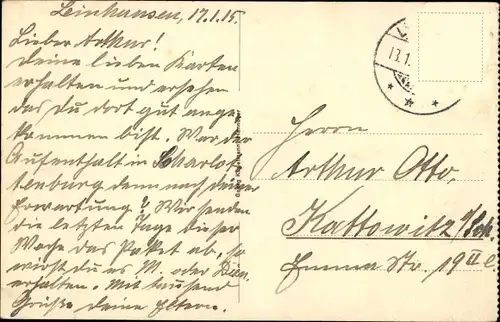 Leinhausen, 17.1.15.
Lieber Arthur!
Deine lieben Karten
erhalten und ersehen
das du dort gut ange
kommen bist. War der
Aufenthalt in Charlot
tenburg denn nach deiner
Erwartung? Wir senden
die letzten Tage dieser
Woche das Paket ab, so
wirst du es M. oder Dien.
erhalten. Mit tausend
Grüße deine Eltern.
13.1.
Herrn
Arthur Otto,
Kattowitz
Emma Str. 19